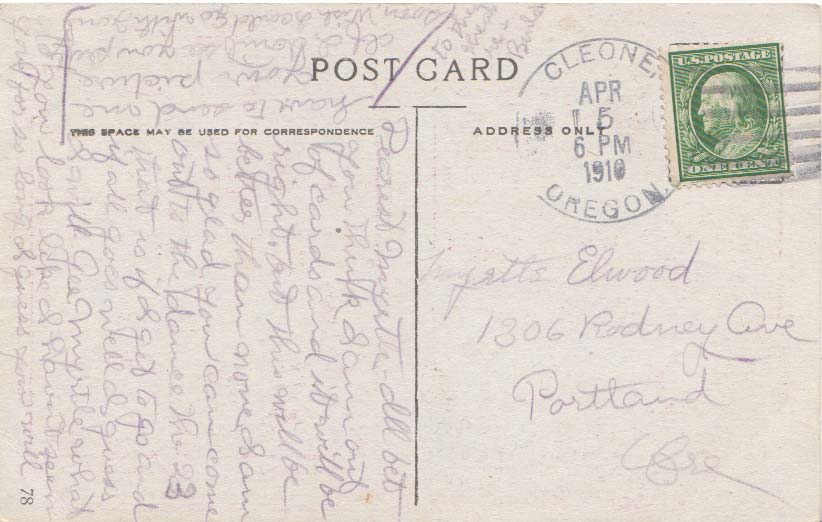 POST CARD
THIS SPACE MAY BE USED FOR CORRESPONDENCE
ADDRESS ONLY
CLEONE,
APR
5
6 PM
1910
OREGON
U.S. POSTAGE
ONE CENT
Myrtle Elwood
1306 Rodney Ave
Portland
Ore
Dearest Myrtle - Ill bet
you think I am out
of cards and it will be
right, but this will be
better than none, I am
so glad you can come
out to the dance the 23
that is if I get to go and
if all goes well I guess
I will. Gee Myrtle what
do you look like I havnt seen
you for so long I guess you will
have to send me
your picture
soon, Wish I could go with you
78